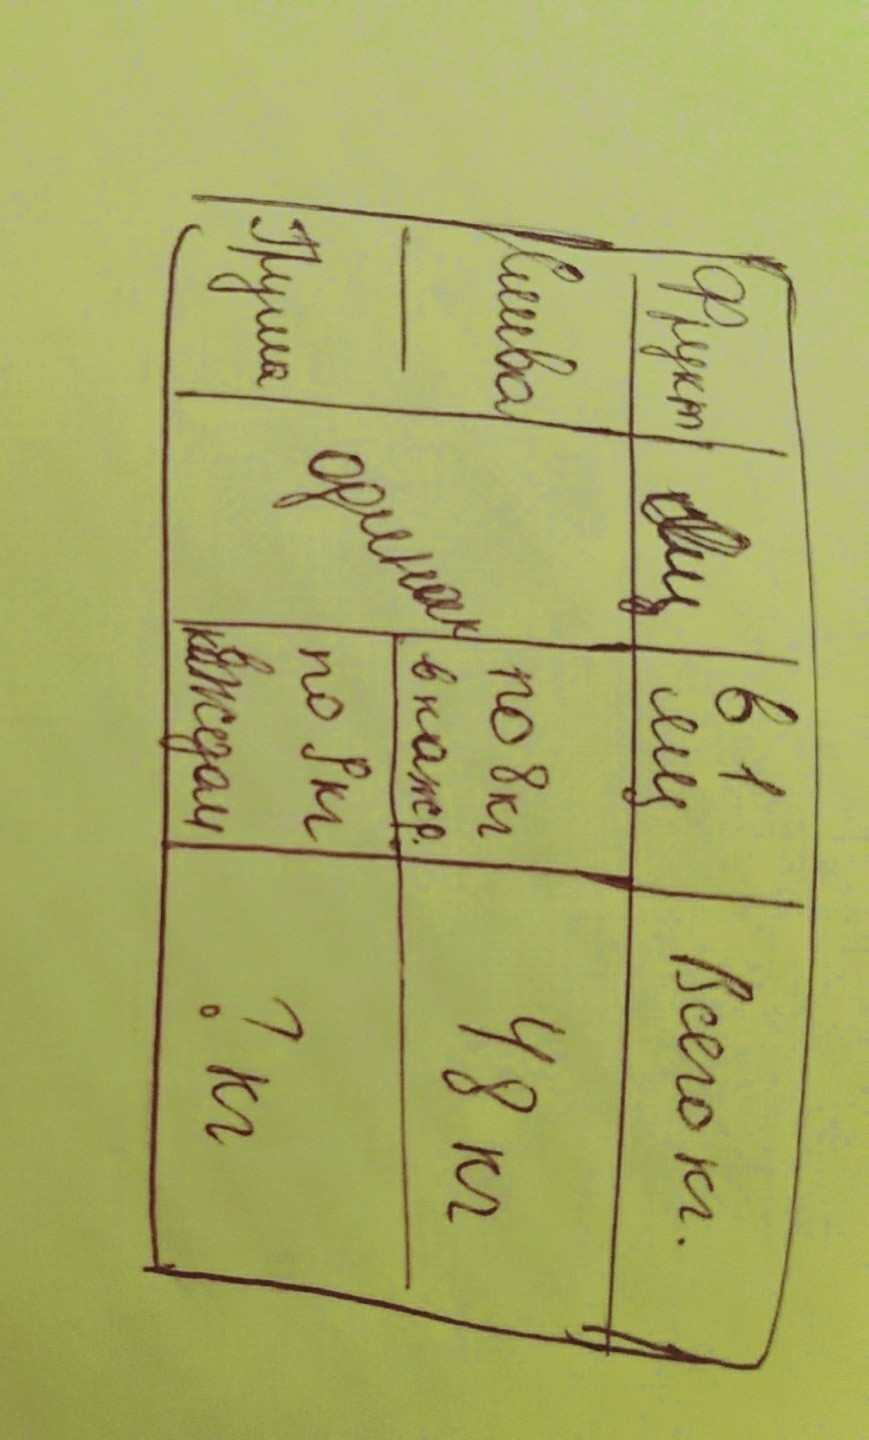 Фрукт
Ящ
в 1
ящ
Всего кг.
Слива
одинак
по 8кг
в кажд.
48 кг
Груша
по 9кг
в каждом
? кг